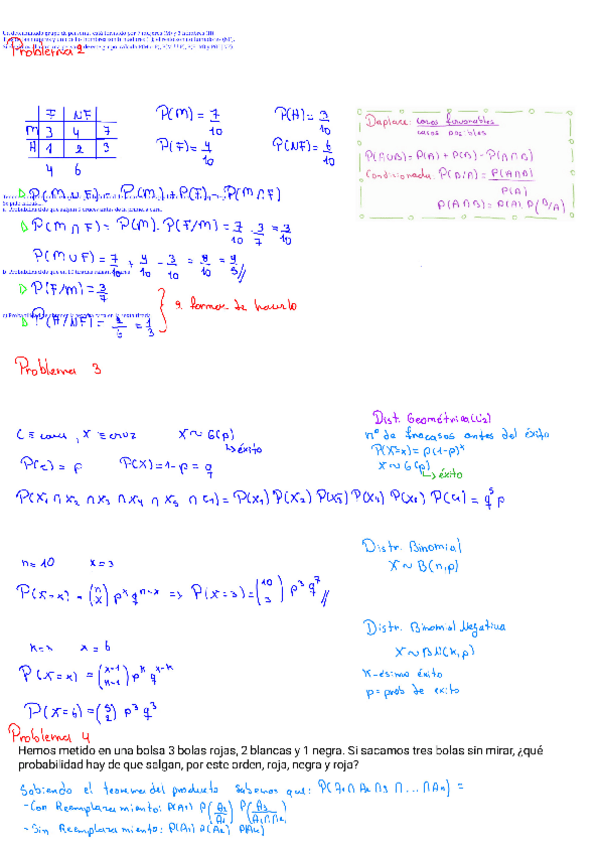 Problema 2
F NF
M 3 4 7
H 1 2 3
4 6
P(M) = 7/10 P(H) = 3/10
P(F) = 4/10 P(NF) = 6/10
Laplace: casos favorables / casos posibles
P(A∪B) = P(A) + P(B) - P(A∩B)
Condicionada: P(B/A) = P(A∩B) / P(A)
P(A∩B) = P(A) · P(B/A)
P(M ∪ F) = P(M) + P(F) - P(M ∩ F)
P(M ∩ F) = P(M) · P(F/M) = 7/10 · 3/7 = 3/10
P(M ∪ F) = 7/10 + 4/10 - 3/10 = 8/10 = 4/5 //
P(F/M) = 3/7
2 formas de hacerlo
P(H/NF) = 2/6 = 1/3
Problema 3
Dist. Geométrica
C ≡ cara, X ≡ cruz X ~ G(p)
↳ éxito
nº de fracasos antes del éxito
P(X=x) = p(1-p)^x
X ~ G(p)
↳ éxito
P(C) = p P(X) = 1-p = q
P(X1 ∩ X2 ∩ X3 ∩ X4 ∩ X5 ∩ C1) = P(X1) P(X2) P(X3) P(X4) P(X5) P(C1) = q^5 p
Distr. Binomial
X ~ B(n,p)
n = 10 x = 3
P(X=x) = (n x) p^x q^n-x => P(X=3) = (10 3) p^3 q^7 //
Distr. Binomial Negativa
X ~ BN(k,p)
k-ésimo éxito
p = prob de éxito
x = 6
P(X=x) = (x-1 k-1) p^k q^x-k
P(X=6) = (5 2) p^3 q^3
Problema 4
Hemos metido en una bolsa 3 bolas rojas, 2 blancas y 1 negra. Si sacamos tres bolas sin mirar, ¿qué
probabilidad hay de que salgan, por este orden, roja, negra y roja?
Sabiendo el teorema del producto sabemos que: P(A1 ∩ A2 ∩ A3 ∩ ... ∩ An) =
- Con Reemplazamiento: P(A1) P(A2/A1) P(A3/A1∩A2)
- Sin Reemplazamiento: P(A1) P(A2) P(A3)